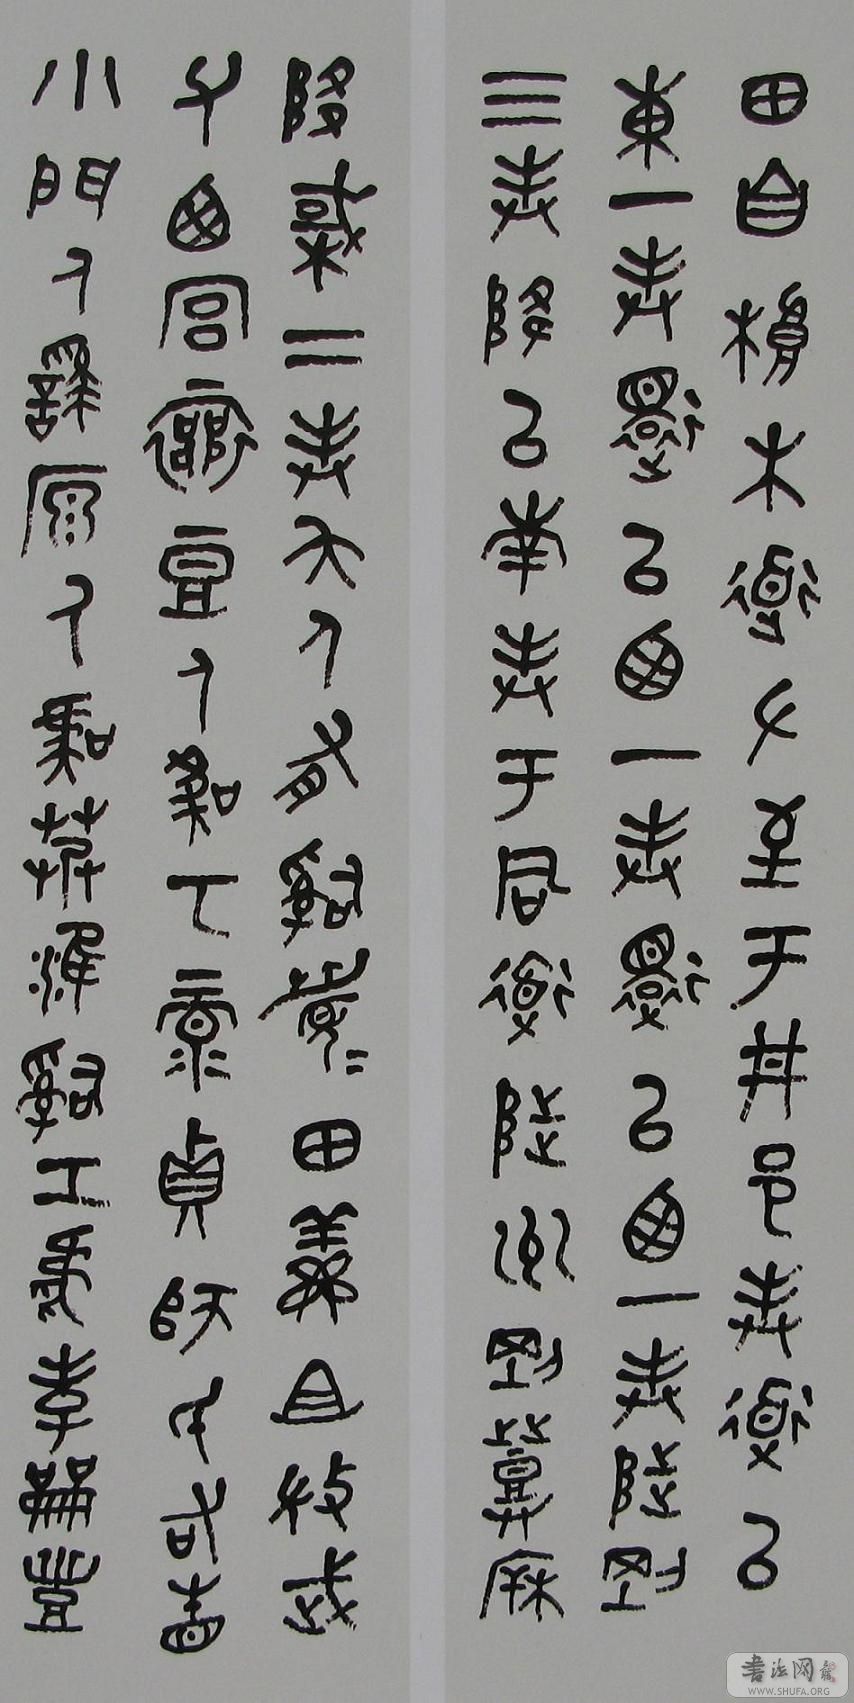 田自桹木道左至于井邑封道以
東一封還以西一封還以西一封陟剛
三封降以南封于同道陟州剛登𣏟
降棫二封夨人有司眉田鮮且微武
父西宮襄豆人虞丂彔貞師氏右眚
小門人繇原人虞艿淮司工虎孝龠豐
書法网
WWW.SHUFA.ORG